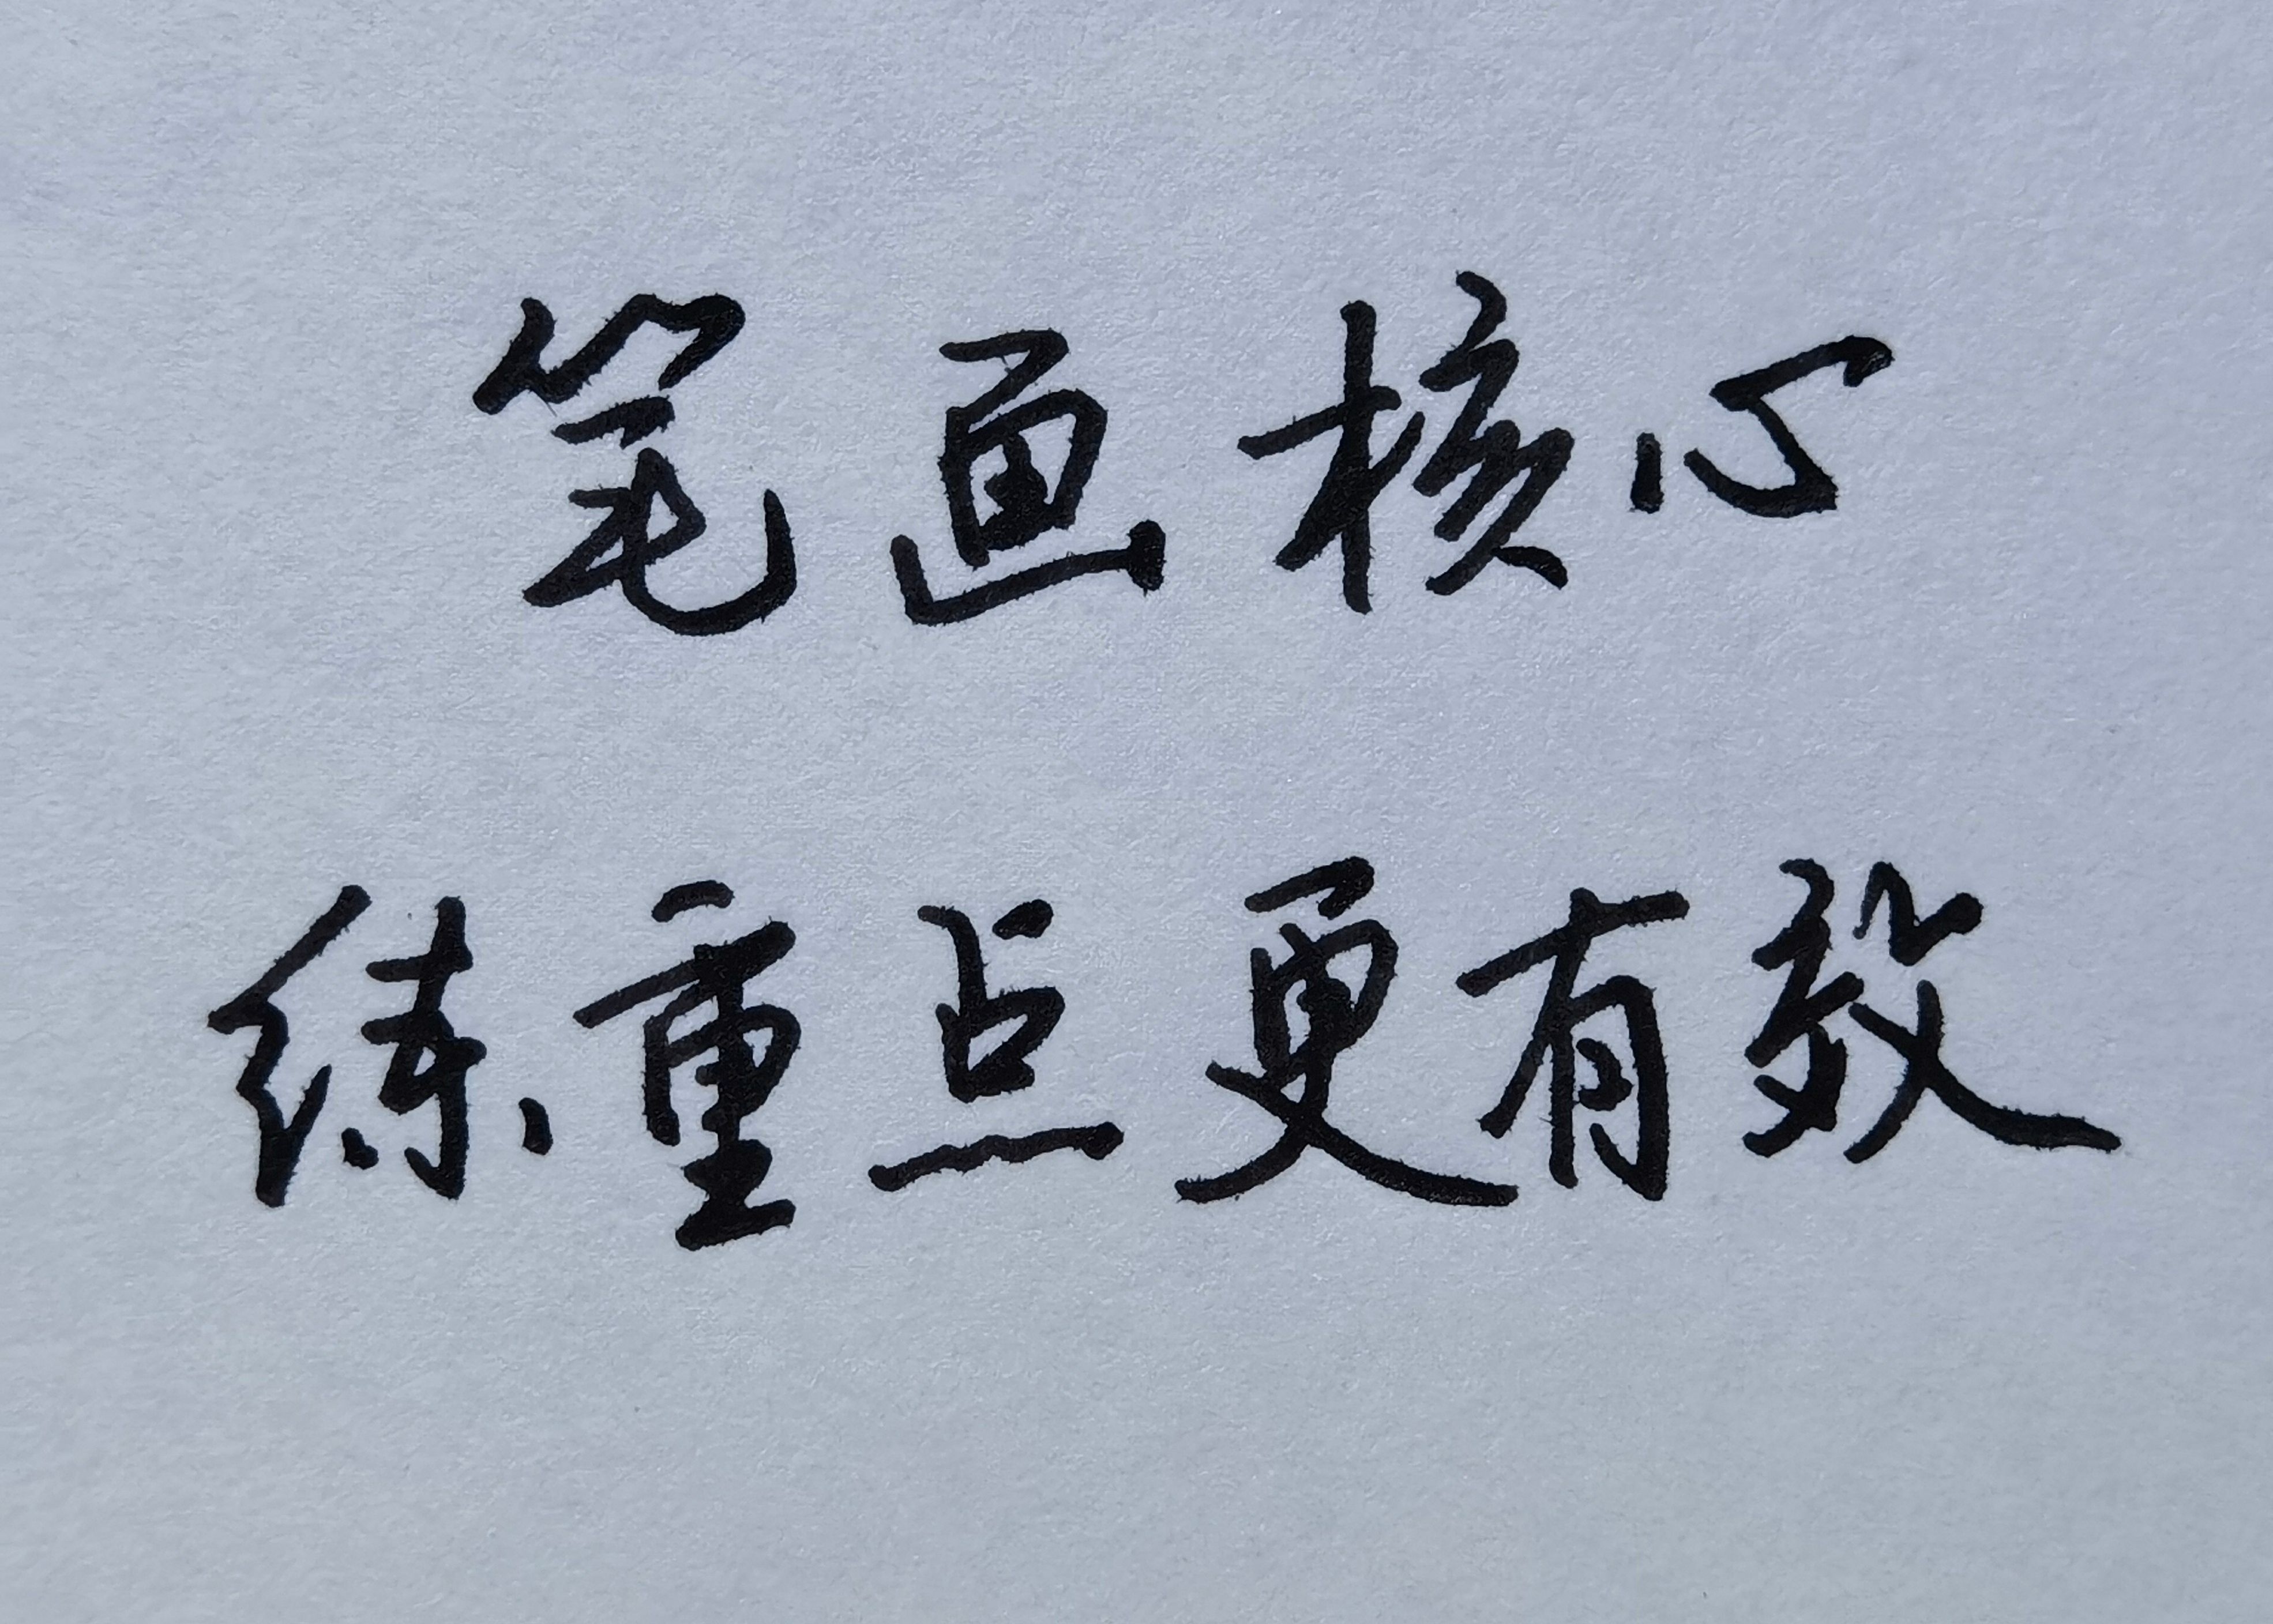 笔画核心
练重点更有效